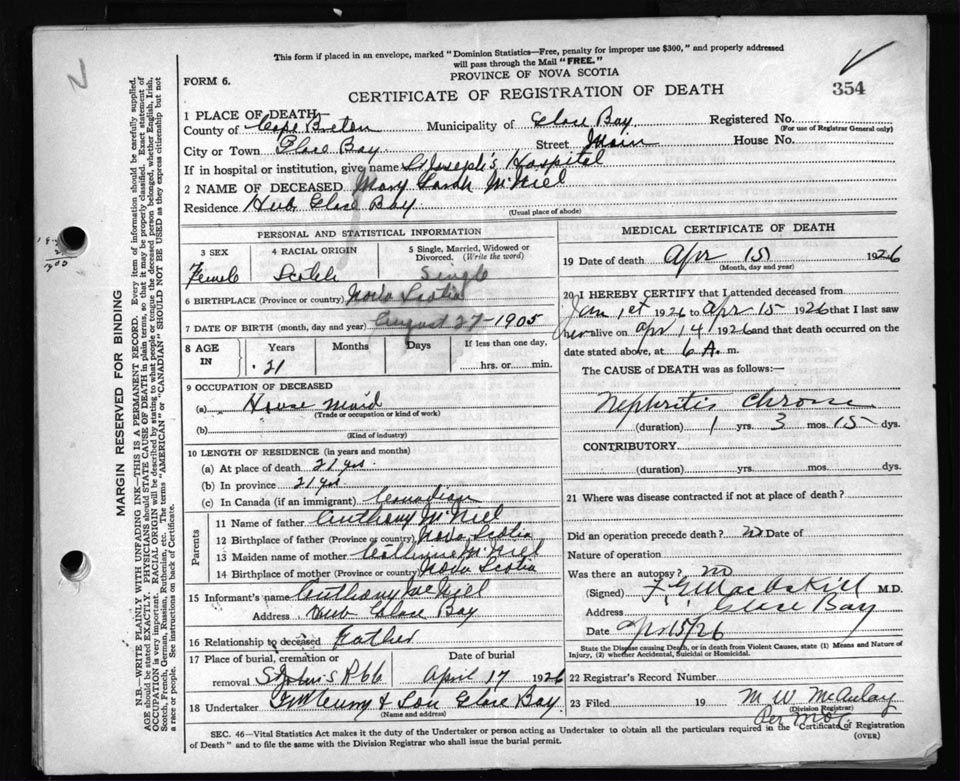 This form if placed in an envelope, marked "Dominion Statistics—Free, penalty for improper use $300," and properly addressed
will pass through the Mail "FREE."
FORM 6.
PROVINCE OF NOVA SCOTIA
CERTIFICATE OF REGISTRATION OF DEATH
354
1 PLACE OF DEATH
County of Cape Breton Municipality of Glace Bay Registered No.
(For use of Registrar General only)
City or Town Glace Bay Street Main House No.
If in hospital or institution, give name St Joseph's Hospital
2 NAME OF DECEASED Mary Sarah McNiel
Residence Hub Glace Bay
(Usual place of abode)
PERSONAL AND STATISTICAL INFORMATION
3 SEX 4 RACIAL ORIGIN 5 Single, Married, Widowed or
Divorced. (Write the word)
Female Scotch Single
6 BIRTHPLACE (Province or country) Nova Scotia
7 DATE OF BIRTH (month, day and year) August 27 1905
8 AGE IN Years Months Days If less than one day,
21 hrs. or min.
9 OCCUPATION OF DECEASED
(a) House Maid
(Trade or occupation or kind of work)
(b)
(Kind of industry)
10 LENGTH OF RESIDENCE (in years and months)
(a) At place of death 21 yrs.
(b) In province 21 yrs
(c) In Canada (if an immigrant) Canadian
Parents
11 Name of father Anthony McNiel
12 Birthplace of father (Province or country) Nova Scotia
13 Maiden name of mother McNiel
14 Birthplace of mother (Province or country) Nova Scotia
15 Informant's name Anthony McNiel
Address Hub Glace Bay
16 Relationship to deceased Father
17 Place of burial, cremation or Date of burial
removal St John's April 17 1926
18 Undertaker & Son Glace Bay
(Name and address)
MEDICAL CERTIFICATE OF DEATH
19 Date of death Apr 15 1926
(Month, day and year)
20 I HEREBY CERTIFY that I attended deceased from
Jan 1st 1926 to Apr 15 1926 that I last saw
her alive on Apr 14 1926 and that death occurred on the
date stated above, at 6 A. m.
The CAUSE of DEATH was as follows:—
Nephritis Chronic
(duration) 1 yrs. 3 mos. 15 dys.
CONTRIBUTORY
(duration) yrs. mos. dys.
21 Where was disease contracted if not at place of death?
Did an operation precede death? no Date of
Nature of operation
Was there an autopsy? no
(Signed) MacAskill M.D.
Address Glace Bay
Date Apr 15/26
State the Disease causing Death, or in death from Violent Causes, state (1) Means and Nature of
Injury, (2) whether Accidental, Suicidal or Homicidal.
22 Registrar's Record Number
23 Filed 19 M W McAulay
(Division Registrar)
Per
SEC. 46—Vital Statistics Act makes it the duty of the Undertaker or person acting as Undertaker to obtain all the particulars required in the Certificate of Registration
of Death" and to file the same with the Division Registrar who shall issue the burial permit.
(OVER)
MARGIN RESERVED FOR BINDING
N.B.—WRITE PLAINLY WITH UNFADING INK—THIS IS A PERMANENT RECORD. Every item of information should be carefully supplied.
AGE should be stated EXACTLY. PHYSICIANS should STATE CAUSE OF DEATH in plain terms, so that it may be properly classified. Exact statement of
OCCUPATION is very important. RACIAL ORIGIN will be described by stating to what people or tongue the deceased person belonged, whether English, Irish,
Scotch, French, German, Russian, Ruthenian, etc. The terms "AMERICAN" or "CANADIAN" SHOULD NOT BE USED as they express citizenship but not
a race or people. See instructions on back of Certificate.